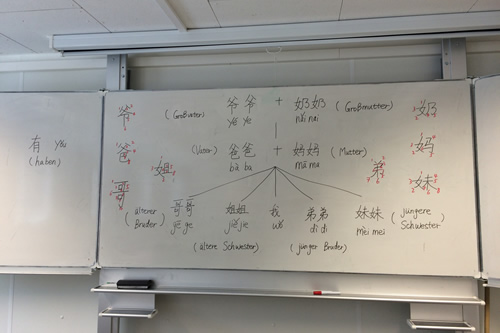 有 yǒu
(haben)
爷
爸
姐
哥
(Großvater) 爷爷 + 奶奶 (Großmutter)
yé ye nǎi nai
(Vater) 爸爸 + 妈妈 (Mutter)
bà ba mā ma
(älterer Bruder) 哥哥 姐姐 我 弟弟 妹妹 (jüngere Schwester)
gē ge jiějie wǒ dì di mèi mei
(ältere Schwester) (jünger Bruder)
奶
妈
弟
妹